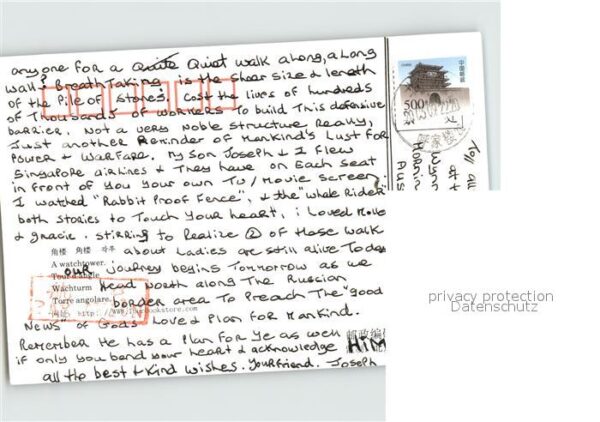 anyone for a Quite Quiet walk along, along
walk? Breath Taking is the shear size & length
of the Pile of stones. Cost the lives of hundreds
of Thousands of workers To build This defensive
barrier. Not a very Noble structure Really,
Just another Reminder of Mankind's Lust for
Power & Warfare. My son Joseph & I flew
Singapore airlines & They have on Each seat
in front of You Your own TV/Movie screen.
I watched "Rabbit Proof Fence", & the "Whale Rider
both stories to Touch Your heart, i Loved Molly
& gracie. stirring to Realize ② of those walk
about Ladies are still alive Today
角楼 角楼
A watchtower.
our journey begins Tommorrow as we
Tour d'angle
Wachturm
Head North along The Russian
Torre angolare.
border area To Preach The "good
News" of Gods Love & Plan for Mankind.
Remember He has a Plan for Ye as well
邮政编
if only you bend your heart & acknowledge HIM
all the best & Kind wishes. Your friend. Joseph
中国邮政
500
Toy all
at t
Wynn
Hornin
Aus
privacy protection
Datenschutz